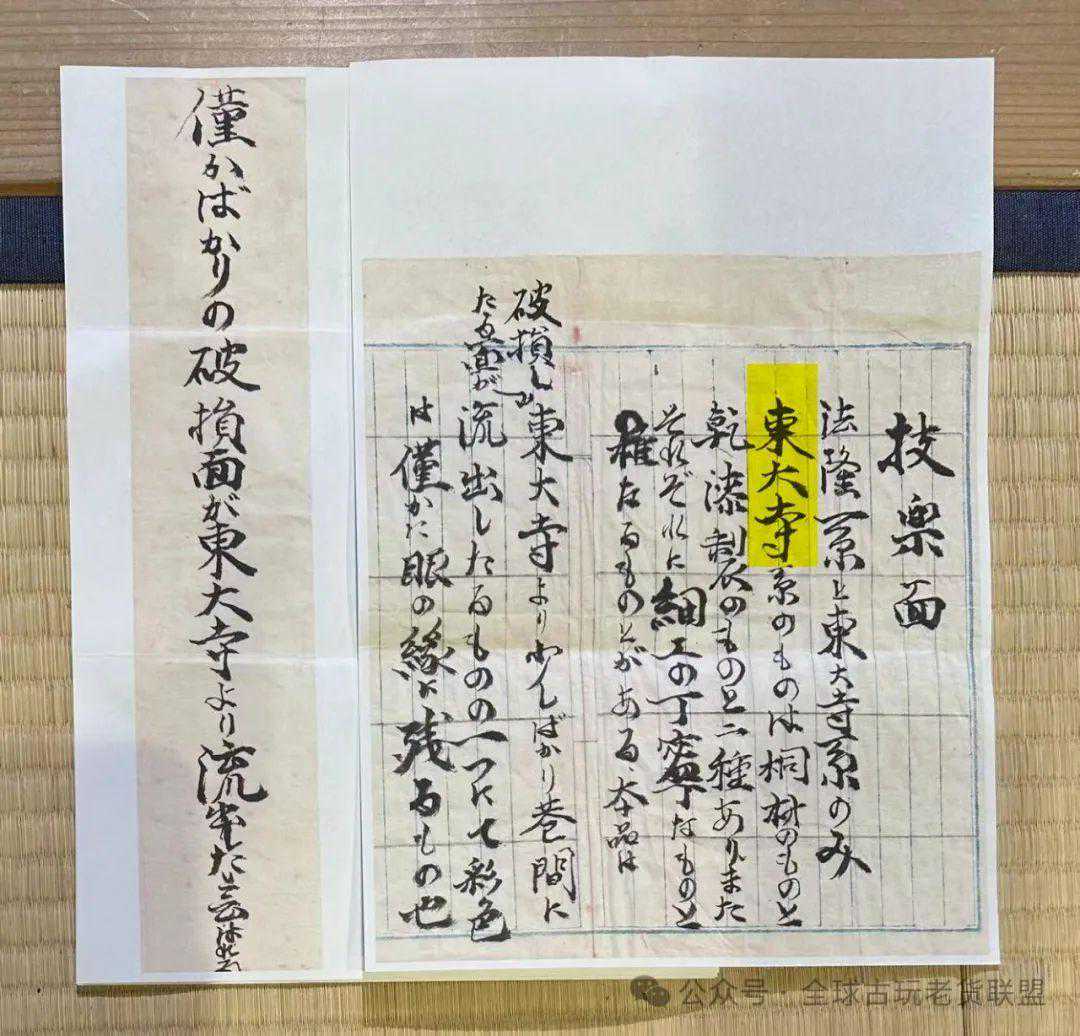 技楽面
法隆系と東大寺系のみ
東大寺系のものは桐材のものと
乾漆製のものと二種ありまた
それぞれに細工の丁寧なものと
雑なるものとがある、本品は
破損し
たる面が
東大寺より少しばかり巷間に
流出したるものの一つにて彩色
は僅かに眼の縁に残るもの也
僅かばかりの破損面が東大寺より流出した云はれる
公众号·全球古玩老货联盟